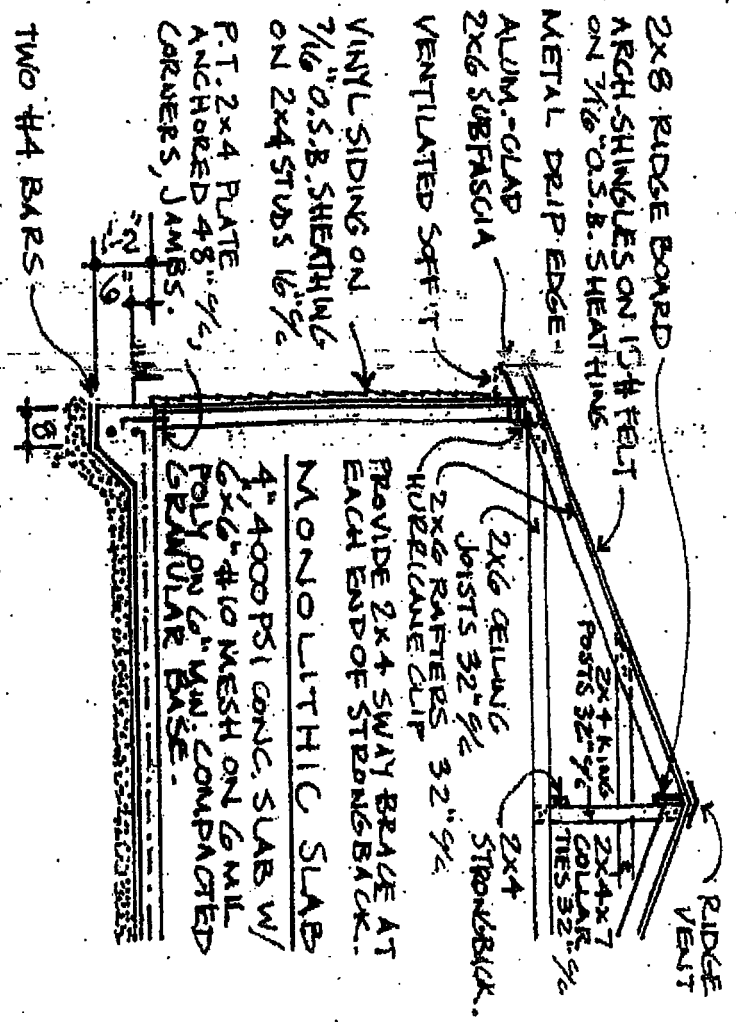 2X8 RIDGE BOARD
ARCH. SHINGLES ON 15# FELT
ON 7/16" O.S.B. SHEATHING
METAL DRIP EDGE
ALUM.-CLAD
2X6 SUBFASCIA
VENTILATED SOFFIT
VINYL SIDING ON
7/16" O.S.B. SHEATHING
ON 2X4 STUDS 16" c/c
P.T. 2x4 PLATE
ANCHORED 48" c/c,
CORNERS, JAMBS.
TWO #4 BARS
RIDGE
VENT
2X4X7
COLLAR
TIES 32" c/c
2X4 KING
POSTS 32" c/c
2X4
STRONGBACK..
2X6 CEILING
JOISTS 32" c/c
2X6 RAFTERS 32" c/c
HURRICANE CLIP
PROVIDE 2X4 SWAY BRACE AT
EACH END OF STRONGBACK..
MONOLITHIC SLAB
4", 4000 PSI CONC. SLAB W/
6X6" #10 MESH ON 6 MIL
POLY ON 6" MIN. COMPACTED
GRANULAR BASE.
12"
6"
18